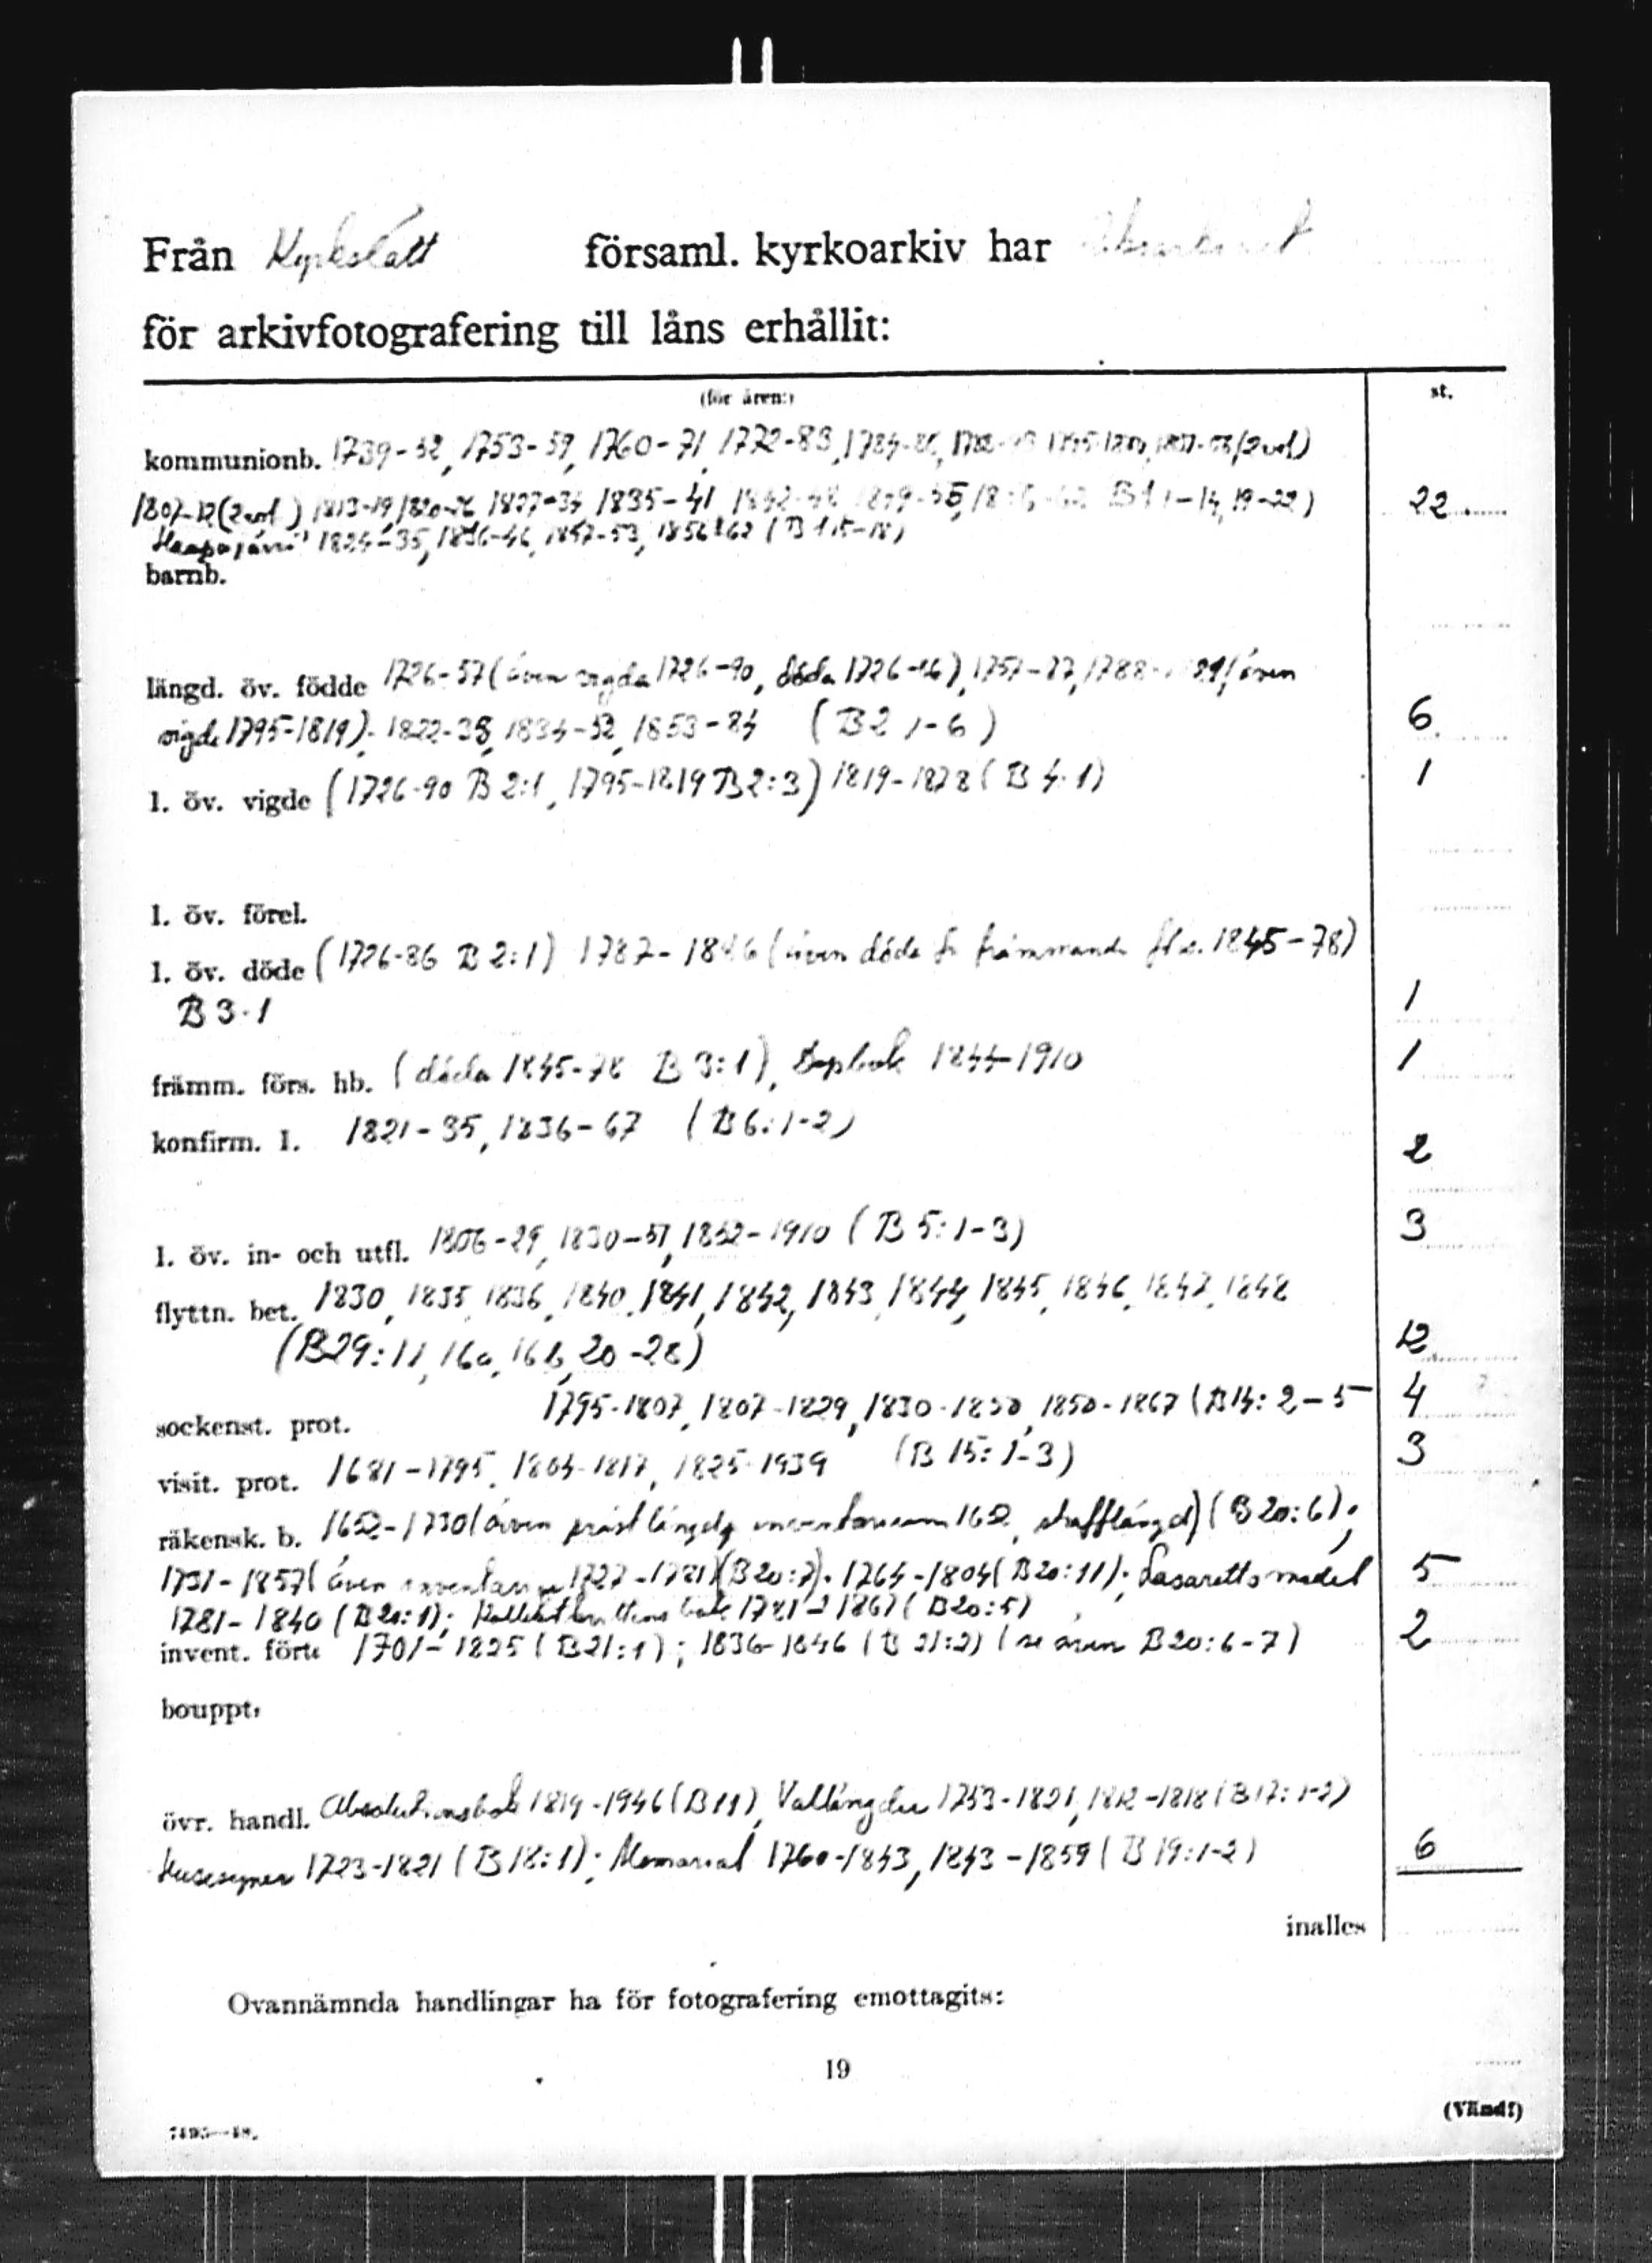 Från Kyrkslätt församl. kyrkoarkiv har
för arkivfotografering till låns erhållit:
(för åren:) st.
kommunionb. 1739-52, 1753-59, 1760-71, 1772-83, (2 vol)
1807-12 (2 vol.) 1813-19, 1820-26 1827-34 1835-41 1842-48 1-14, 19-22) 22
Haapajärvi 1824-35, 1836-46, 1847-53, 1856-62 (B 1:15-18)
barnb.
längd. öv. födde 1726-57 (även vigda 1726-90, döda 1726-86), 1757-87, 1788- (även
vigde 1795-1819), 1822-38, 1834-52, 1853-84 (B 2 1-6) 6
l. öv. vigde (1726-90 B 2:1, 1795-1819 B 2:3) 1819-1878 (B 4:1) 1
l. öv. förel.
l. öv. döde (1726-86 B 2:1) 1787- (även döda fr främmande 1845-78)
B 3:1 1
främm. förs. hb. (döda 1845-78 B 3:1), Dopbok 1844-1910 1
konfirm. l. 1821-35, 1836-67 (B 6:1-2) 2
l. öv. in- och utfl. 1806-29, 1830-51, 1852-1910 (B 5:1-3) 3
flyttn. bet. 1830, 1835, 1836, 1840, 1841, 1842, 1843, 1844, 1845, 1846, 1847, 1848
(B29:11, 16a, 16b, 20-28) 12
sockenst. prot. 1795-1807, 1807-1829, 1830-1850, 1850-1867 (B14: 2-5 4
visit. prot. 1681-1795, 1804-1817, 1825-1939 (B 15: 1-3) 3
räkensk. b. 1652-1730 (även inventarium 1652, ) (B 20:6);
1731-1857 (även 1727-1781) (B20:7); 1764-1804 (B20:11); Lasarettsmedel 5
1781-1840 (B 20:1); 1781-1867 (B20:5)
invent. fört. 1701-1825 (B21:1); 1836-1846 (B 21:2) (se även B20:6-7) 2
bouppt.
övr. handl. Absolutionsbok 1819-1946 (B11), Vallängder 1753-1821, 1812-1818 (B17: 1-2)
Husesyner 1723-1821 (B18:1); Memorial 1760-1843, 1843-1859 (B 19:1-2) 6
inalles
Ovannämnda handlingar ha för fotografering emottagits:
19
(Vänd!)